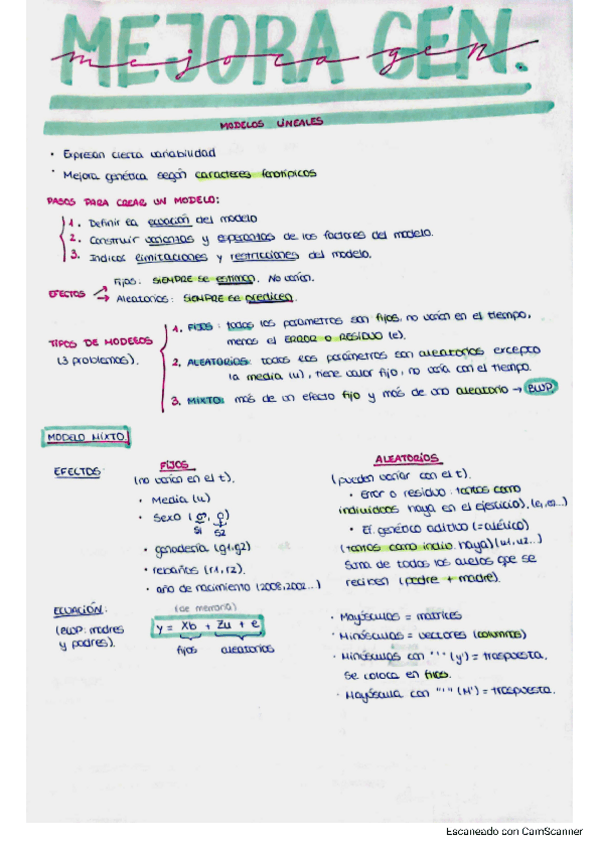 MEJORA GEN.
mejora gen
MODELOS LINEALES
• Expresan cierta variabilidad
• Mejora genética según caracteres fenotípicos
PASOS PARA CREAR UN MODELO:
1. Definir la ecuación del modelo
2. Construir varianzas y esperanzas de los factores del modelo.
3. Indicar limitaciones y restricciones del modelo.
EFECTOS
Fijos: SIEMPRE se estiman. No varían.
Aleatorios: SIEMPRE se predicen.
TIPOS DE MODELOS
(3 problemas).
1. FIJOS: todos los parámetros son fijos, no varían en el tiempo,
menos el ERROR O RESIDUO (e).
2. ALEATORIOS: todos los parámetros son aleatorios excepto
la media (u), tiene valor fijo, no varía con el tiempo.
3. MIXTO: más de un efecto fijo y más de uno aleatorio → BLUP.
MODELO MIXTO
EFECTOS:
FIJOS
(no varían en el t).
• Media (u)
• Sexo (♂, ♀)
S1 S2
• ganadería (g1, g2)
• rebaños (r1, r2).
• año de nacimiento (2008, 2002...)
ALEATORIOS
(pueden variar con el t).
• Error o residuo: tantos como
individuos haya en el ejercicio), (e1, e2...)
• Ef. genético aditivo (=alélico)
(tantos como indiv. haya) (u1, u2...)
Suma de todos los alelos que se
reciben (padre + madre).
ECUACIÓN:
(BLUP: madres
y padres).
(de memoria)
y = Xb + Zu + e
fijos aleatorios
• Mayúsculas = matrices
• Minúsculas = vectores (columnas)
• Minúsculas con "'" (y') = traspuesta,
se coloca en filas.
• Mayúscula con "'" (M') = traspuesta.
Escaneado con CamScanner